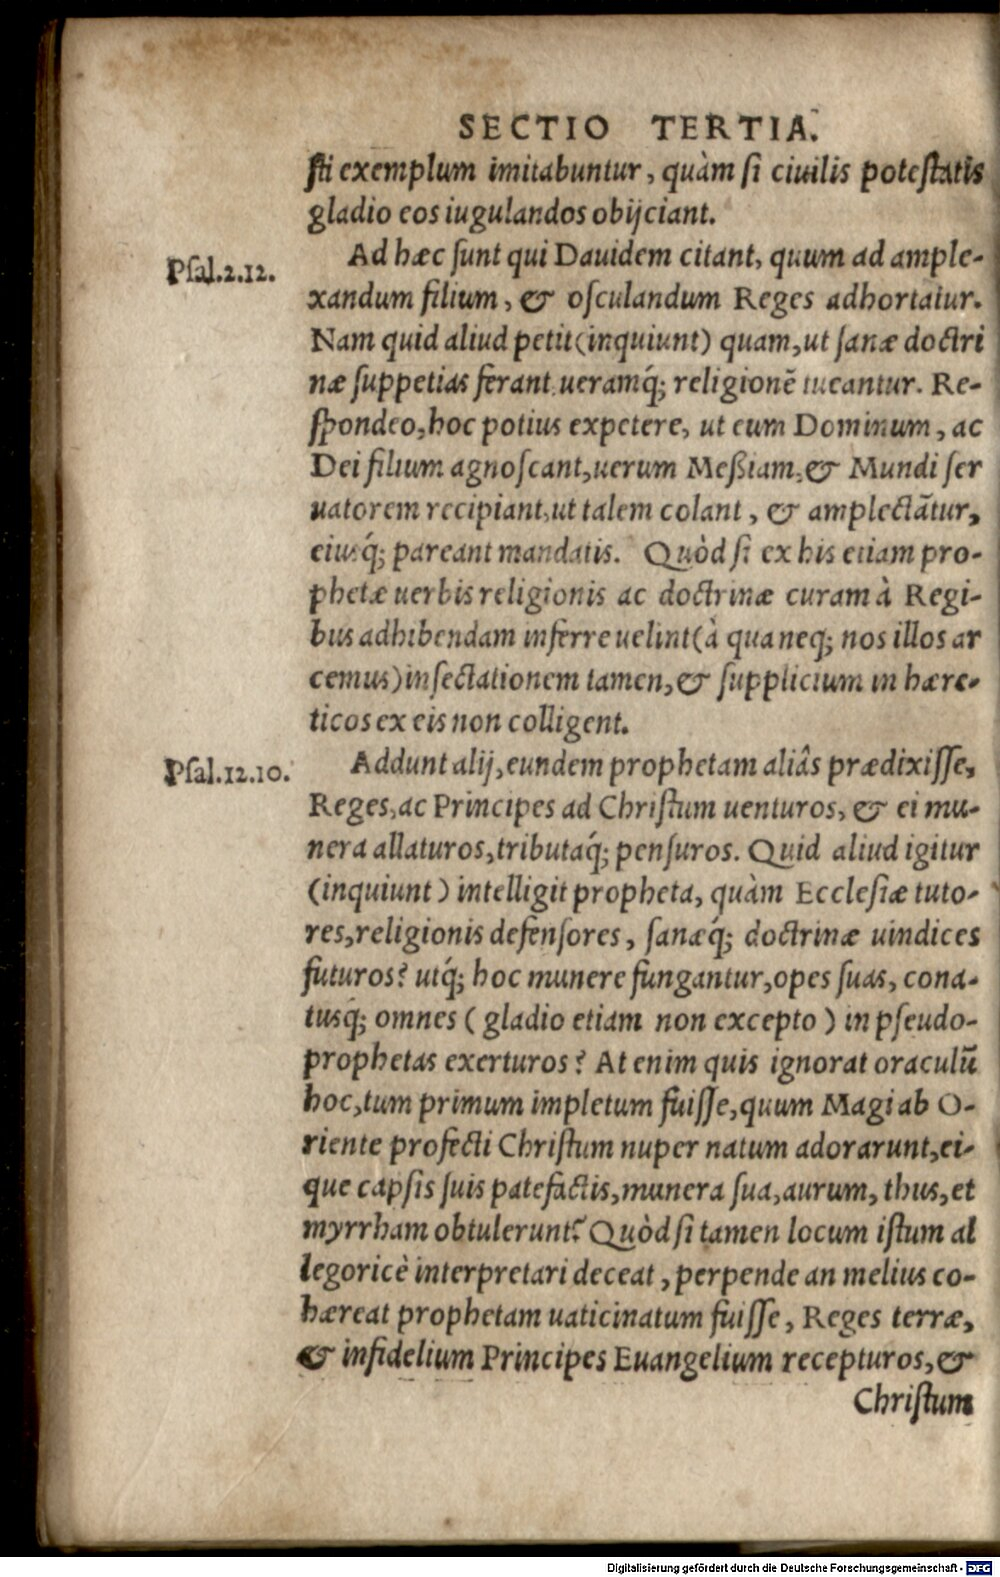 SECTIO TERTIA.
sti exemplum imitabuntur, quàm si ciuilis potestatis
gladio eos iugulandos obijciant.
Psal.2.12.
Ad hæc sunt qui Dauidem citant, quum ad ample-
xandum filium, & osculandum Reges adhortatur.
Nam quid aliud petit (inquiunt) quam, ut sanæ doctri
næ suppetias ferant, ueramq́; religionē tueantur. Re-
spondeo, hoc potius expetere, ut eum Dominum, ac
Dei filium agnoscant, uerum Meßiam, & Mundi ser
uatorem recipiant, ut talem colant, & amplectātur,
eiusq́; pareant mandatis. Quòd si ex his etiam pro-
phetæ uerbis religionis ac doctrinæ curam à Regi-
bus adhibendam inferre uelint (à qua neq; nos illos ar
cemus) insectationem tamen, & supplicium in hære-
ticos ex eis non colligent.
Psal.12.10.
Addunt alij, eundem prophetam aliâs prædixisse,
Reges, ac Principes ad Christum uenturos, & ei mu-
nera allaturos, tributaq́; pensuros. Quid aliud igitur
(inquiunt) intelligit propheta, quàm Ecclesiæ tuto-
res, religionis defensores, sanæq́; doctrinæ uindices
futuros? utq́; hoc munere fungantur, opes suas, cona-
tusq́; omnes (gladio etiam non excepto) in pseudo-
prophetas exerturos? At enim quis ignorat oraculū
hoc, tum primum impletum fuisse, quum Magi ab O-
riente profecti Christum nuper natum adorarunt, ei-
que capsis suis patefactis, munera sua, aurum, thus, et
myrrham obtulerunt? Quòd si tamen locum istum al
legoricè interpretari deceat, perpende an melius co-
hæreat prophetam uaticinatum fuisse, Reges terræ,
& infidelium Principes Euangelium recepturos, &
Christum
Digitalisierung gefördert durch die Deutsche Forschungsgemeinschaft - DFG